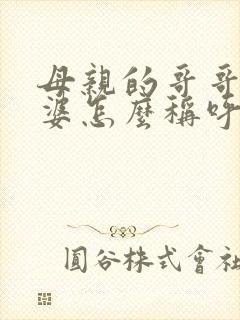 母親的哥哥
婆怎麼稱呼
圓谷株式會社